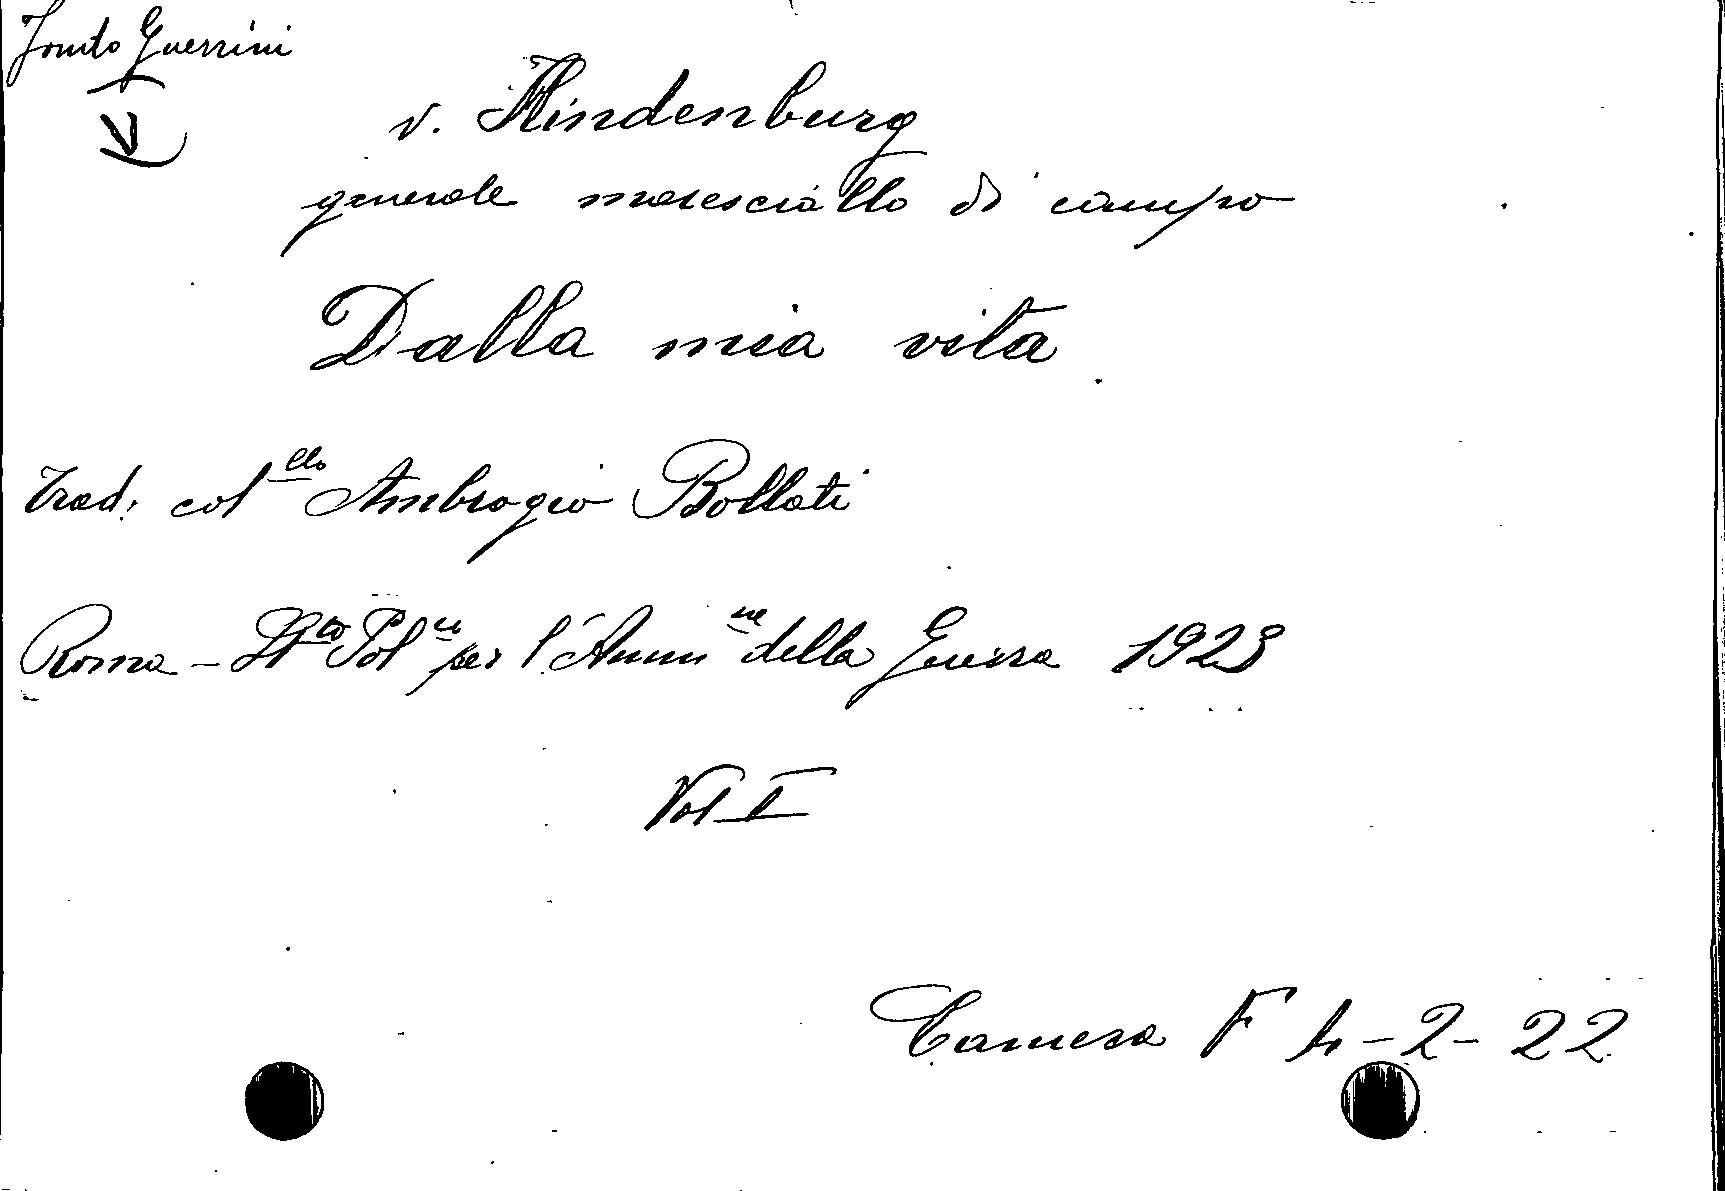 Fondo Guerrini
v. Hindenburg
generale maresciallo di campo
Dalla mia vita
Trad. col.llo Ambrogio Bollati
Roma - Stto Pol.co per l'Amm.ne della Guerra 1923
Vol I
Camera F 4-2-22